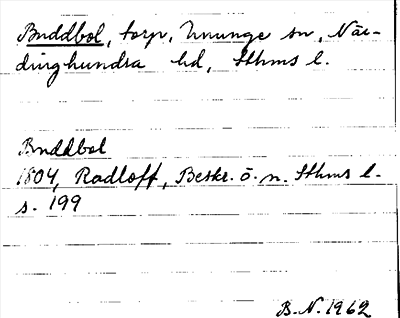 Buddbol, torp, Ununge sn, När-
dinghundra hd, Sthms l.
Buddbol
1804, Radloff, Beskr. ö. n. Sthms l.
s. 199
B.N. 1962